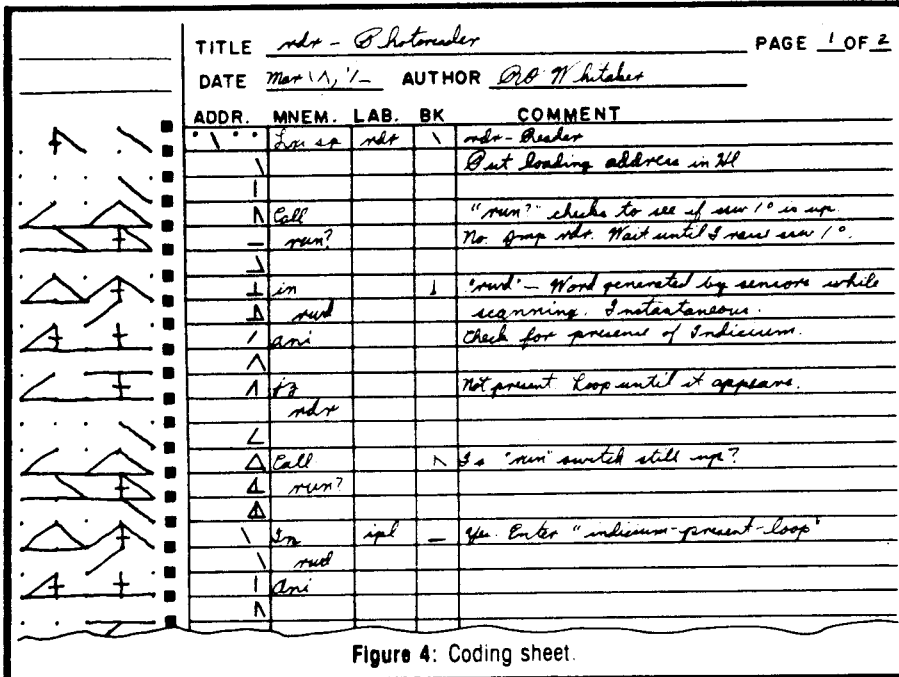 TITLE rdr - Photoreader PAGE 1 OF 2
DATE Mar AUTHOR RO Whitaker
ADDR. MNEM. LAB. BK COMMENT
Lxi sp rdr rdr - Reader
Put loading address in Hl
Call "run?" checks to see if sw 1° is up.
run? No. Jmp rdr. Wait until I raise sw 1°.
in "rwd" — Word generated by sensors while
rwd scanning. Instantaneous.
ani Check for presence of Indicium.
jz Not present. Loop until it appears.
rdr
Call Is "run" switch still up?
run?
In ipl Yes. Enter "indicium-present-loop"
rwd
Ani
Figure 4: Coding sheet.